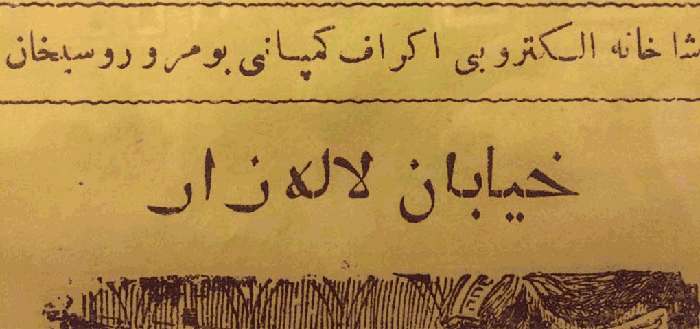 شاخانه الکتروبی اکراف کمپانی بومر و روسیخان
خیابان لاله زار